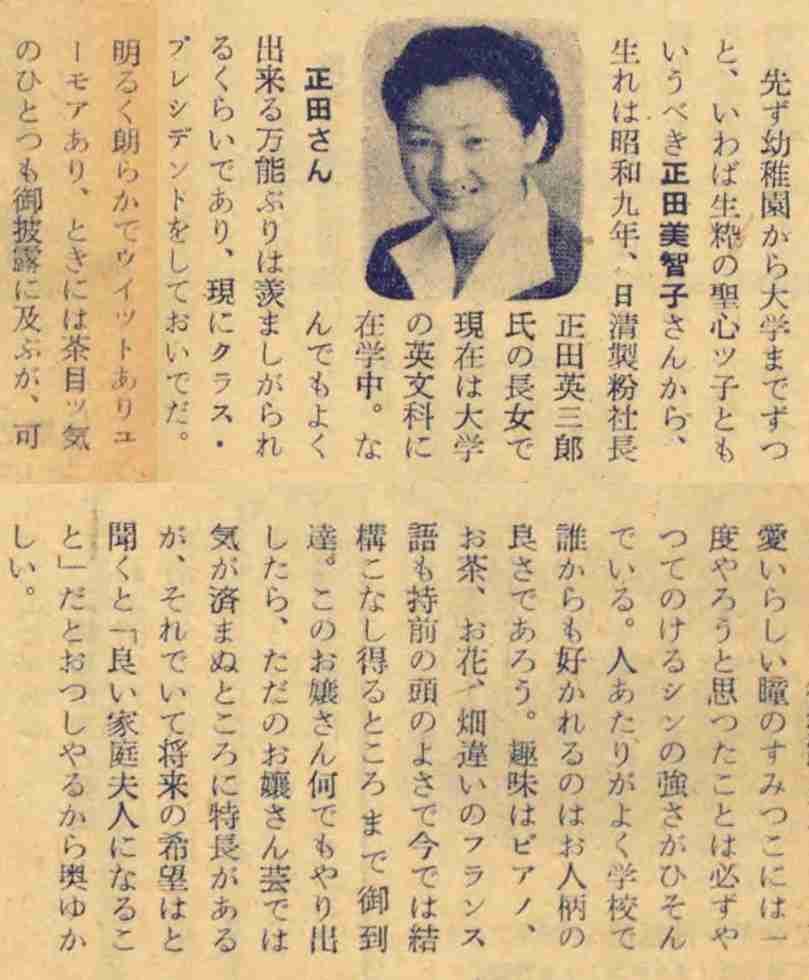 先ず幼稚園から大学までずつ
と、いわば生粋の聖心ツ子とも
いうべき正田美智子さんから、
生れは昭和九年、日清製粉社長
正田英三郎
氏の長女で
現在は大学
の英文科に
在学中。な
んでもよく
正田さん
出来る万能ぶりは羨ましがられ
るくらいであり、現にクラス・
プレシデントをしておいでだ。
明るく朗らかでウイツトありユ
ーモアあり、ときには茶目ッ気
のひとつも御披露に及ぶが、可
愛いらしい瞳のすみつこには一
度やろうと思つたことは必ずや
つてのけるシンの強さがひそん
でいる。人あたりがよく学校で
誰からも好かれるのはお人柄の
良さであろう。趣味はピアノ、
お茶、お花、畑違いのフランス
語も持前の頭のよさで今では結
構こなし得るところまで御到
達。このお嬢さん何でもやり出
したら、ただのお嬢さん芸では
気が済まぬところに特長がある
が、それでいて将来の希望はと
聞くと「良い家庭夫人になるこ
と」だとおつしやるから奥ゆか
しい。